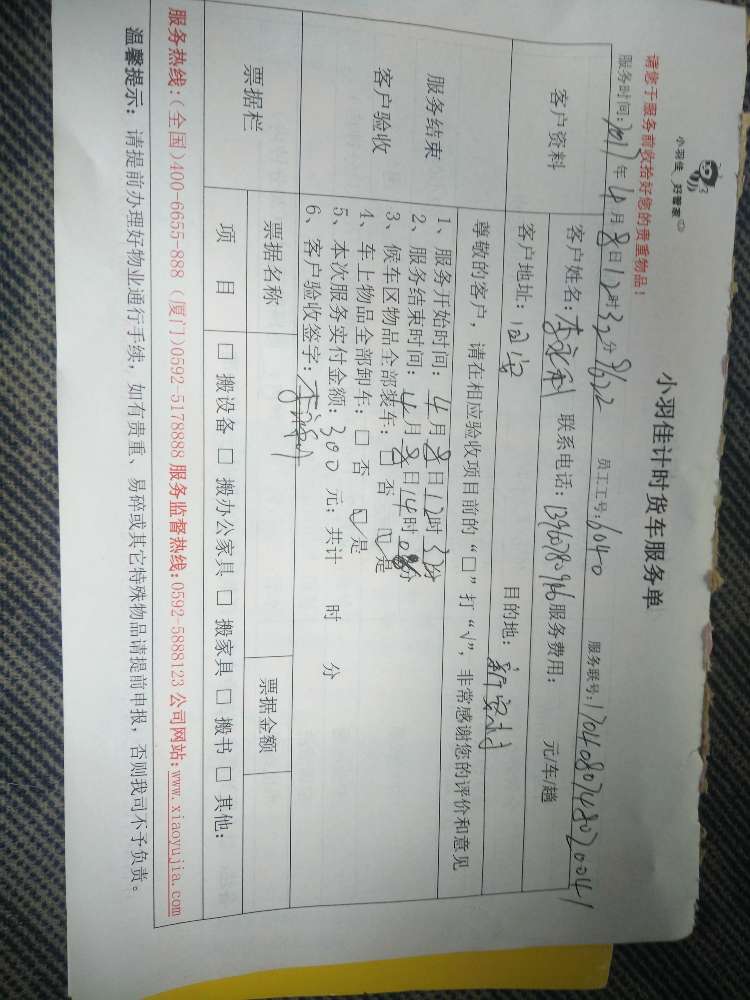 小羽佳 好管家
小羽佳计时货车服务单
请您于服务前收拾好您的贵重物品！
服务时间：2017年4月8日12时32分 员工工号：6040 服务联号：1704080748020041
客户资料
客户姓名： 联系电话： 服务费用： 元/车/趟
客户地址：同安 目的地：新安村
服务结束
客户验收
尊敬的客户，请在相应验收项目前的“□”打“√”，非常感谢您的评价和意见
1、服务开始时间：4月8日12时32分
2、服务结束时间：4月8日14时08分
3、候车区物品全部装车：□ 否 ☑ 是
4、车上物品全部卸车：□ 否 ☑ 是
5、本次服务实付金额：300 元；共计 时 分
6、客户验收签字：
票据栏
票据名称 票据金额
项 目 □ 搬设备 □ 搬办公家具 □ 搬家具 □ 搬书 □ 其他：
服务热线:(全国)400-6655-888 (厦门)0592-5178888 服务监督热线:0592-5888123 公司网站:www.xiaoyujia.com
温馨提示：请提前办理好物业通行手续，如有贵重、易碎或其它特殊物品请提前申报，否则我司不予负责。